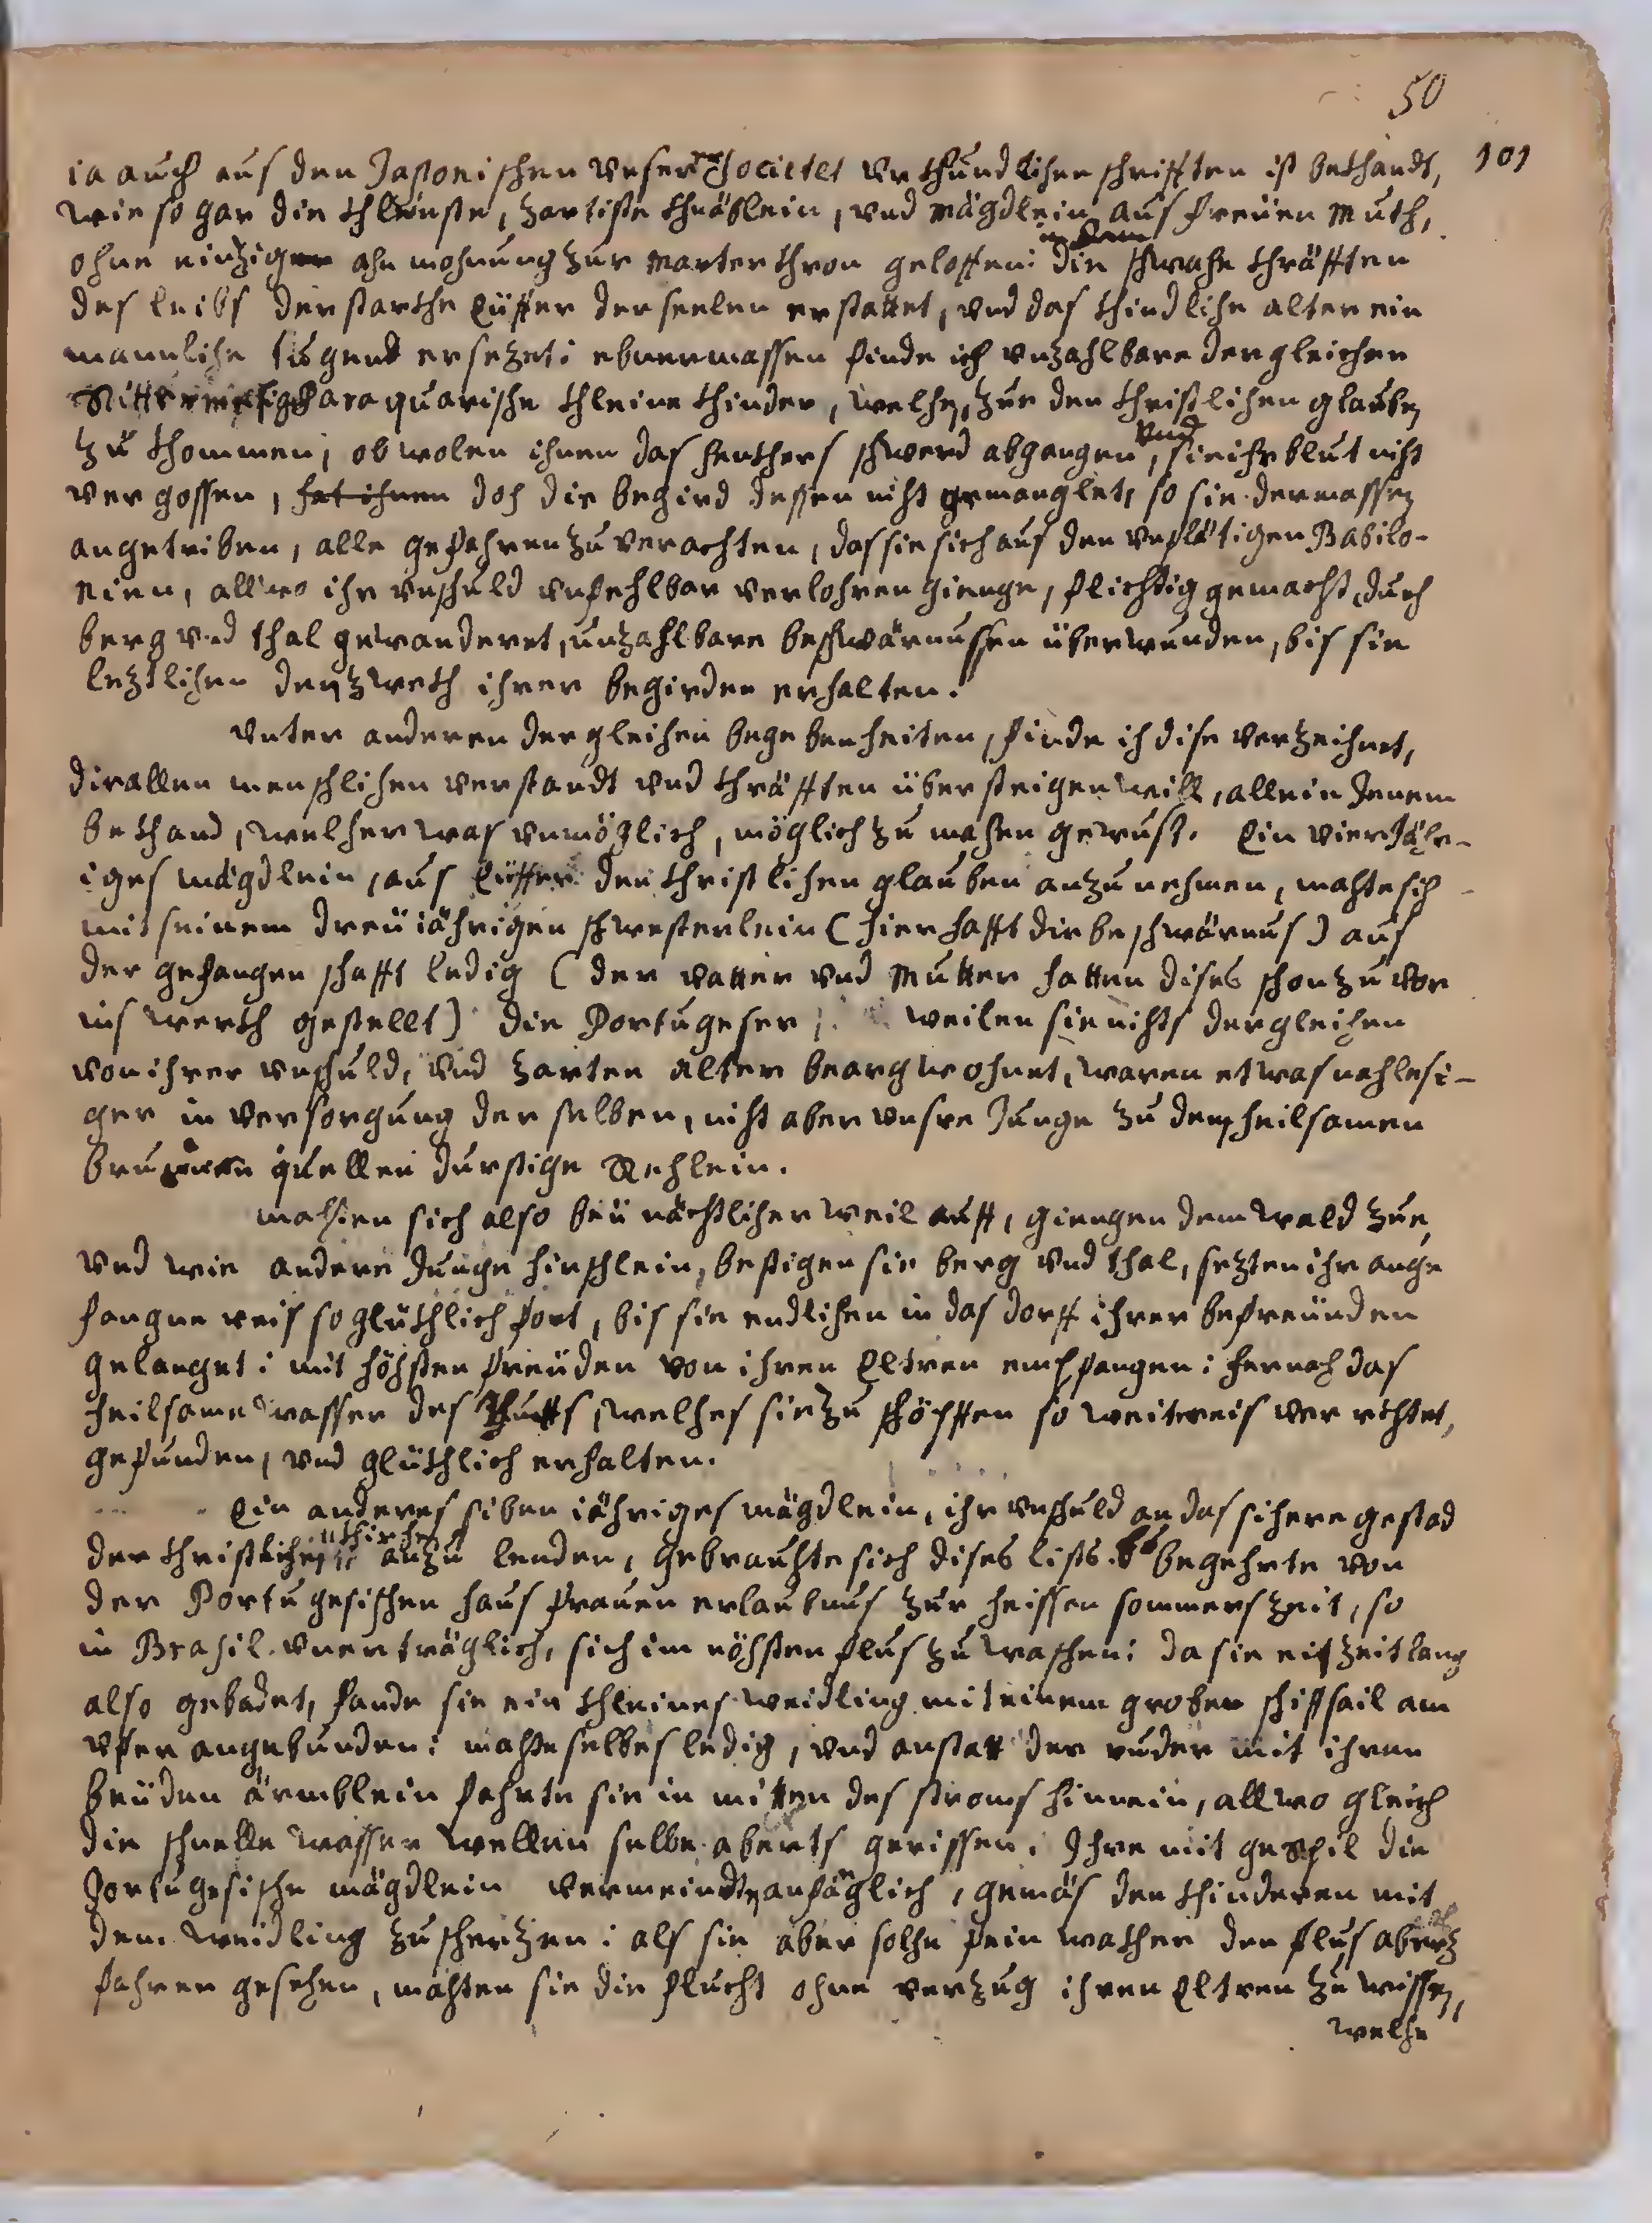 50
101
ia auch aus den Japonischen unser Societet urkhundlichen schrifften ist bekhandt,
wie so gar die khleinste, zartiste khnäblein, und mägdlein aus freüen muth,
in dem
ohne einzige ahn mohnung zur marter khron geloffen: die schwache khräfften
des leibs der starkhe Eüffer der seelen erstattet, und das khindliche alter ein
mannliche tugend ersezet: ebnermassen finde ich unzahlbare dergleichen
Paraquarische khleine khinder, welche, zur den khristlichen glauben
und
zu khommen, obwolen ihnen das henkhers schwerd abgangen, sie ihr blut nicht
vergossen, hat ihnen doch die begird dessen nicht gemanglet, so sie dermassen
angetriben, alle gefahren zu verachten, das sie sich aus den unflätigen Babilo-
nien, allwo ihr unschuld unfehlbar verlohren gienge, flichtig gemacht, durch
berg und thal gewanderet, unzahlbare beschwärnussen überwunden, bis sie
lezlichen den zwekh ihrer begirden erhalten.
Unter anderen dergleichen begebenheiten, finde ich dise verzeichnet,
die allen menschlichen verstandt und khräfften übersteigen will, allein Jenem
bekhand, welcher was unmöglich, möglich zu machen gewust. Ein vier Jähr-
iges mägdlein, aus Eüffer den khristlichen glauben anzunehmen, machte sich
mit seinem dreü iährigen schwesterlein (hier hafft die beschwärnus) aus
der gefangenschafft ledig (der vatter und mutter hatten dises schon zuvor
ins werkh gestellt) die Portugeser, weilen sie nichts dergleichen
von ihrer unschuld, und zarten alter beargwohnet, waren etwas nachlesi-
ger in versorgung derselben, nicht aber unsre Junge zu dem heilsamen
brunnen quellen durstige Rehlein.
machten sich also beü nächtlicher weil auff, giengen dem wald zue,
und wie andere Junge hirschlein, bestigen sie berg und thal, sezten ihr ange
fangne reis so glükhlich fort, bis sie endlichen in das dorff ihrer befreünden
gelanget: mit höchsten freüden von ihren Eltren empfangen: hernach das
heilsame wasser des tauffs, welches sie zu schöpffen so weit reis verrichtet,
gefunden, und glükhlich erhalten.
Ein anderes siben iähriges mägdlein, ihr unschuld an das sichere gestad
khirchen
der khristlichen anzu lenden, gebrauchte sich dises lists. begehrte von
der Portugesischen hausfrauen erlaubnus zur heissen sommerszeit, so
in Brasil unerträglich, sich im nöchsten flus zu waschen: da sie ein zeitlang
also gebadet, fande sie ein khleines weidling mit einem groben schifsail am
ufer angebunden: machte selbes ledig, und anstatt der ruder mit ihren
beüden ärmblein fahrte sie in mitten des stroms hinnein, allwo gleich
die schnelle wasser wellen selbe aberts gerissen. Ihre mit gespil die
Portugesische mägdlein vermeindten anfänglich, gemäs den khinderen mit
dem weidling zu scherzen: als sie aber solche fein wakher den flus abwerz
fahren gesehen, machten sie die flucht ohne verzug ihren Eltren zu wissen,
welche